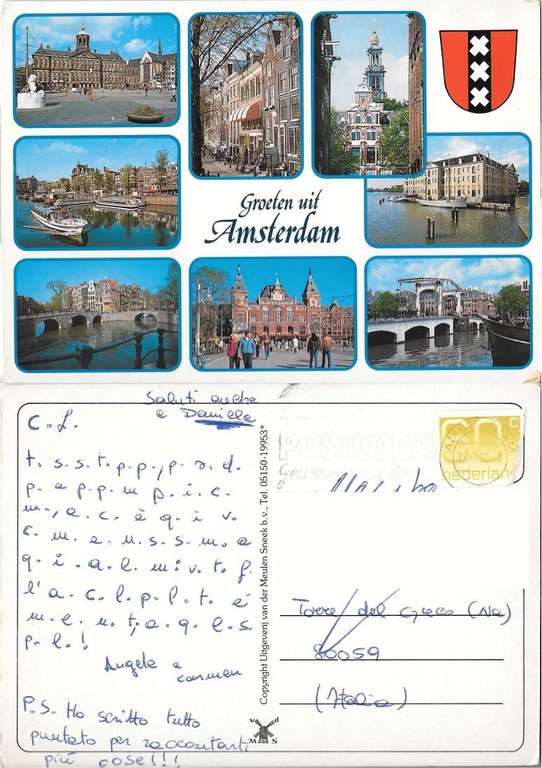 Groeten uit
Amsterdam
Saluti anche
a Daniela
C.L.
t. s. s. t. p. p., p. r. d.
p. a p p. m p. i. c.
m., a. c. è q. i v.
c. m. e. u. s s. m. e
q. i. a. l. m i. v. t. f.
l'a. c. l. p l. t. è
m. e. n. t., a. q. l. s.
p. l. !
Angela e
carmen
P.S. Ho scritto tutto
puntato per raccontarti
più cose!!!
Copyright Uitgeverij van der Meulen Sneek b.v., Tel. 05150-19953*
v d
M S
POSTCODE
C
nederland
Torre del Greco (Na)
80059
(Italia)